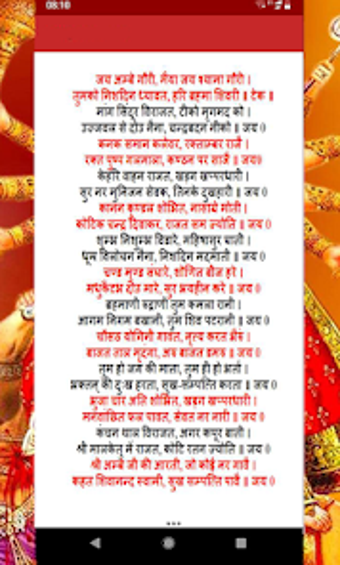 08:10
जय अम्बे गौरी, मैया जय श्यामा गौरी ।
तुमको निशदिन ध्यावत, हरि ब्रह्मा शिवरी ॥ टेक ॥
मांग सिंदूर विराजत, टीको मृगमद को ।
उज्जवल से दोउ नैना, चन्द्रबदन नीको ॥ जय 0
कनक समान कलेवर, रक्ताम्बर राजै ।
रक्त पुष्प गलमाला, कण्ठन पर साजै ॥ जय0
केहरि वाहन राजत, खड़ग खप्परधारी ।
सुर नर मुनिजन सेवक, तिनके दुखहारी ॥ जय 0
कानन कुण्डल शोभित, नासाग्रे मोती ।
कोटिक चन्द्र दिवाकर, राजत सम ज्योति ॥ जय 0
शुम्भ निशुम्भ विदारे, महिषासुर घाती ।
धूम्र विलोचन नैना, निशिदिन मदमाती ॥ जय 0
चण्ड मुण्ड संघारे, शोणित बीज हरे ।
मधुकैटभ दोउ मारे, सुर भयहीन करे ॥ जय 0
ब्रहमाणी रुद्राणी तुम कमला रानी ।
आगम निगम बखानी, तुम शिव पटरानी ॥ जय 0
चौंसठ योगिनी गावत, नृत्य करत भैरु ।
बाजत ताल मृदंगा, अरु बाजत डमरु ॥ जय 0
तुम हो जग की माता, तुम ही हो भर्ता ।
भक्तन् की दुःख हरता, सुख-सम्पत्ति करता ॥ जय 0
भुजा चार अति शोभित, खड़ग खप्परधारी ।
मनवांछित फल पावत, सेवत नर नारी ॥ जय 0
कंचन थाल विराजत, अगर कपूर बाती ।
श्री मालकेतु में राजत, कोटि रतन ज्योति ॥ जय 0
श्री अम्बे जी की आरती, जो कोई नर गावै ।
कहत शिवानन्द स्वामी, सुख सम्पत्ति पावै ॥ जय 0